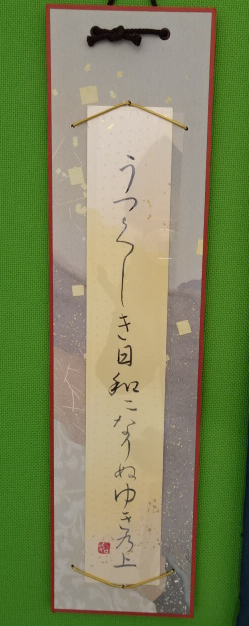 うつくしき日和になりぬゆきの上